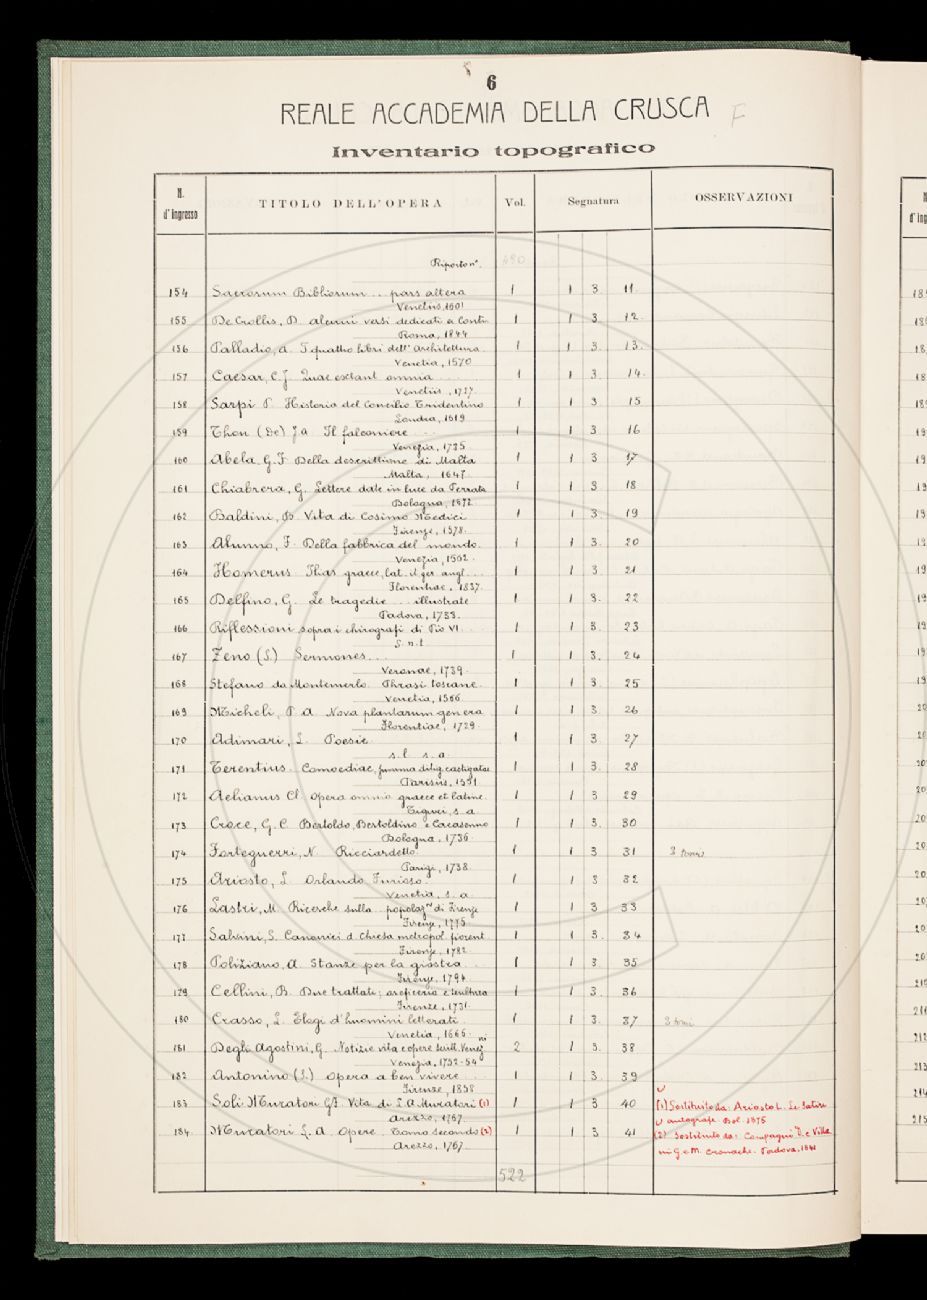 6
REALE ACCADEMIA DELLA CRUSCA F
Inventario topografico
N. d'Ingresso TITOLO DELL'OPERA Vol. Segnatura OSSERVAZIONI
Riporto n. 480
154 Sacrorum Bibliorum .. pars altera 1 1 3 11
Venetiis, 1601
155 De Crollis, D. alcuni versi dedicati a Conti 1 1 3 12
Roma, 1844
156 Palladio, A. I quattro libri dell'Architettura 1 1 3 13
Venetia, 1570
157 Caesar, C. J. Quae extant omnia 1 1 3 14
Venetiis, 1737
158 Sarpi P. Historia del Concilio Tridentino 1 1 3 15
Londra, 1619
159 Thou (De) J. A. Il falconiere 1 1 3 16
Venezia, 1735
160 Abela, G. F. Della descrittione di Malta 1 1 3 17
Malta, 1647
161 Chiabrera, G. Lettere date in luce da Ferrata 1 1 3 18
Bologna, 1872
162 Baldini, B. Vita di Cosimo Medici 1 1 3 19
Firenze, 1578
163 Alunno, F. Della fabbrica del mondo 1 1 3 20
Venezia, 1562
164 Homerus Ilias graece, lat. it. ger. angl... 1 1 3 21
Florentiae, 1837
165 Delfino, G. Le tragedie ... illustrate 1 1 3 22
Padova, 1733
166 Riflessioni sopra i chirografi di Pio VI 1 1 3 23
s. n. t.
167 Zeno (S.) Sermones ... 1 1 3 24
Veronae, 1739
168 Stefano da Montemerlo. Phrasi toscane 1 1 3 25
Venetia, 1566
169 Micheli, P. A. Nova plantarum genera 1 1 3 26
Florentiae, 1729
170 Adimari, L. Poesie 1 1 3 27
s. l. s. a.
171 Terentius. Comoediae, summa dilig. castigatae 1 1 3 28
Parisiis, 1551
172 Aelianus Cl. opera omnia graece et latine 1 1 3 29
Tiguri, s. a.
173 Croce, G. C. Bertoldo, Bertoldino e Cacasenno 1 1 3 30
Bologna, 1736
174 Forteguerri, N. Ricciardetto 1 1 3 31 3 tomi
Parigi, 1738
175 Ariosto, L. Orlando Furioso 1 1 3 32
Venetia, s. a.
176 Lastri, M. Ricerche sulla popolaz.ne di Firenze 1 1 3 33
Firenze, 1775
177 Salvini, S. Canonici d. Chiesa metropol. fiorent. 1 1 3 34
Firenze, 1782
178 Poliziano, A. Stanze per la giostra 1 1 3 35
Firenze, 1794
179 Cellini, B. Due trattati; oreficeria e scultura 1 1 3 36
Firenze, 1731
180 Crasso, L. Elogi d'huomini letterati 1 1 3 37 3 tomi
Venetia, 1666
181 Degli Agostini, G. Notizie vita e opere scritt. Venez.ni 2 1 3 38
Venezia, 1752-54
182 Antonino (S.) Opera a ben vivere 1 1 3 39
Firenze, 1858
183 Soli Muratori G. F. Vita di L. A. Muratori (1) 1 1 3 40 (1) Sostituito da: Ariosto L. Le Satire
Arezzo, 1767 autografe Bol. 1875
184 Muratori L. A. Opere. Tomo secondo (2) 1 1 3 41 (2) Sostituito da: Compagni D. e Villa
Arezzo, 1767 ni G. e M. Cronache. Padova, 1841
522